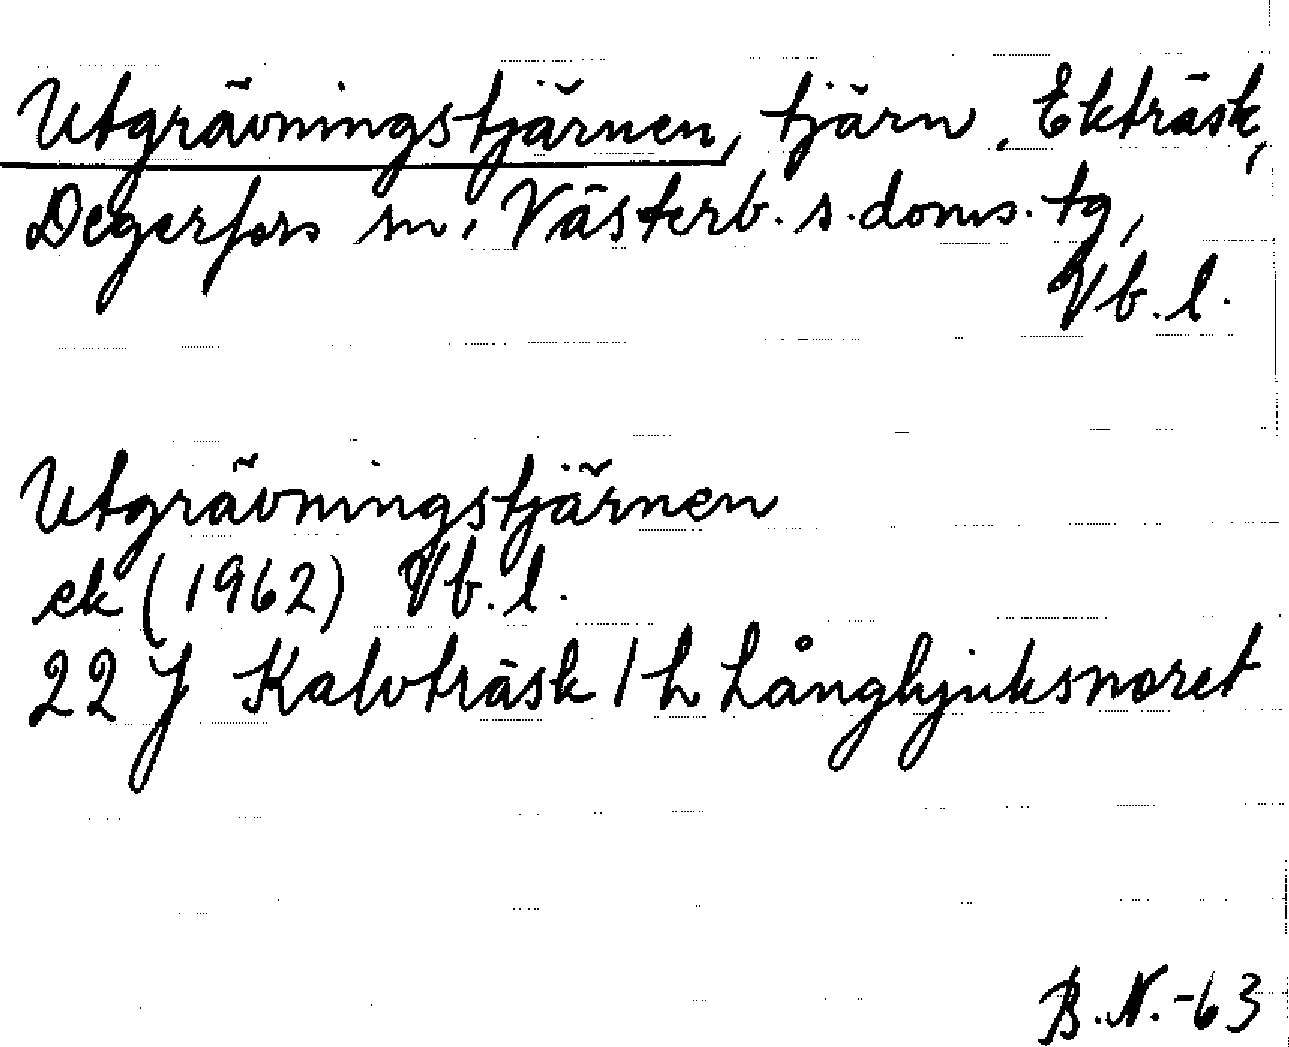 Utgrävningstjärnen, tjärn, Ekträsk,
Degerfors sn, Västerb. s. doms. tg,
Vb. l.
Utgrävningstjärnen
ek (1962) Vb. l.
22 J Kalvträsk 1 h Långhjuksnoret
B. N. -63